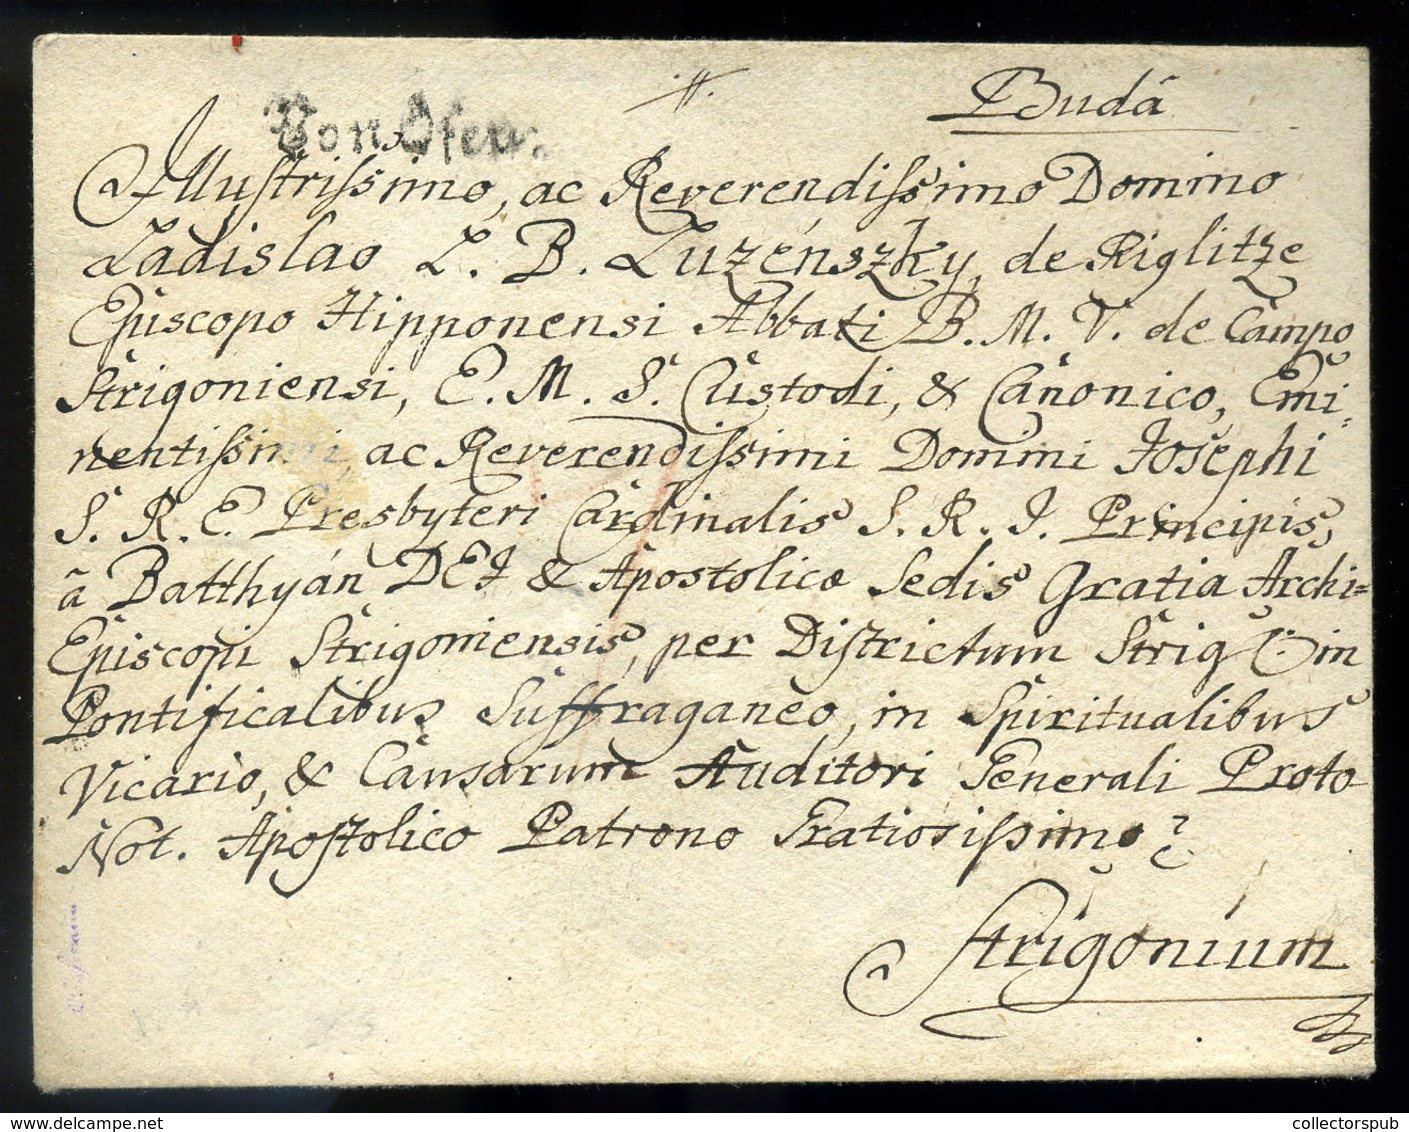 Von Ofen.
Budá
Illustrissimo, ac Reverendissimo Domino
Ladislao L. B. Luzénszky, de Riglitze
Episcopo Hipponensi Abbati B. M. V. de Campo
Strigoniensi, E. M. S. Custodi, & Canonico, Emi-
nentissimi, ac Reverendissimi Domini Josephi
S. R. E. Presbyteri Cardinalis S. R. I. Principis,
à Batthyán DEI & Apostolicæ Sedis Gratia Archi=
Episcopi Strigoniensis, per Districtum Strig: in
Pontificalibus Suffraganeo, in Spiritualibus
Vicario, & Causarum Auditori Generali Proto
Not. Apostolico Patrono Gratiosissimo
Strigonium
www.delcampe.net
collectorspub